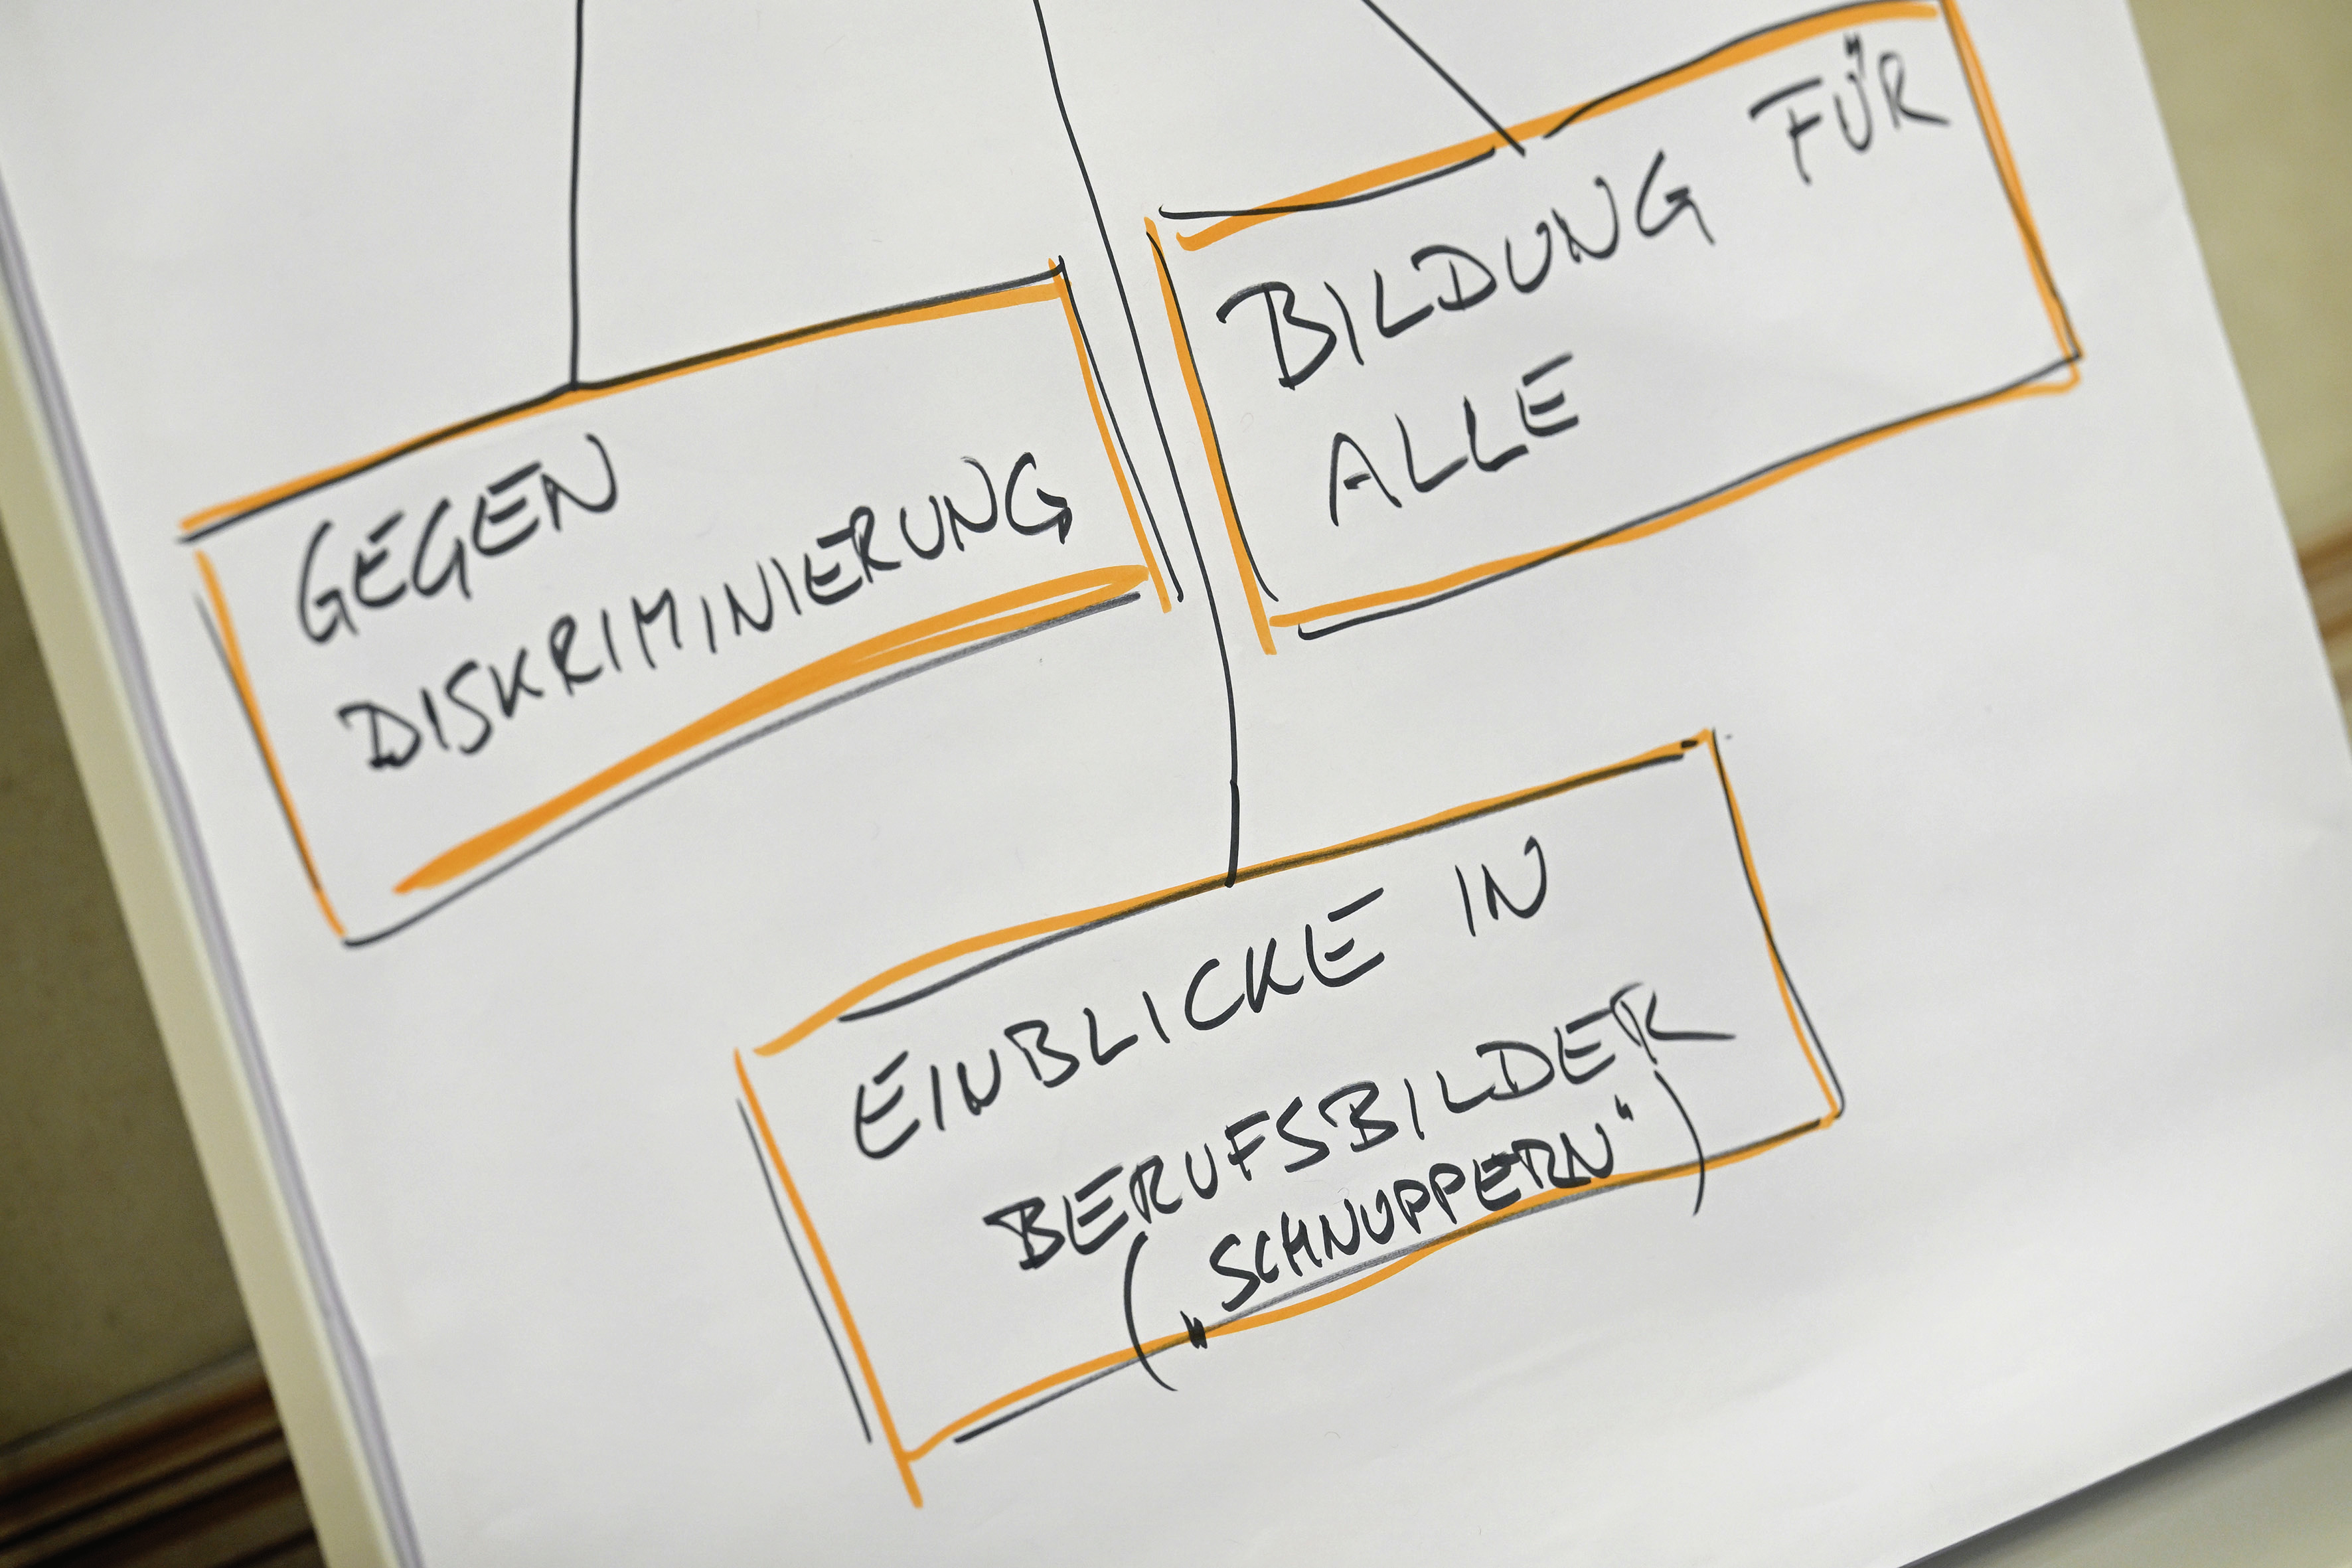 GEGEN
DISKRIMINIERUNG
BILDUNG FÜR
ALLE
EINBLICKE IN
BERUFSBILDER
(„SCHNUPPERN“)